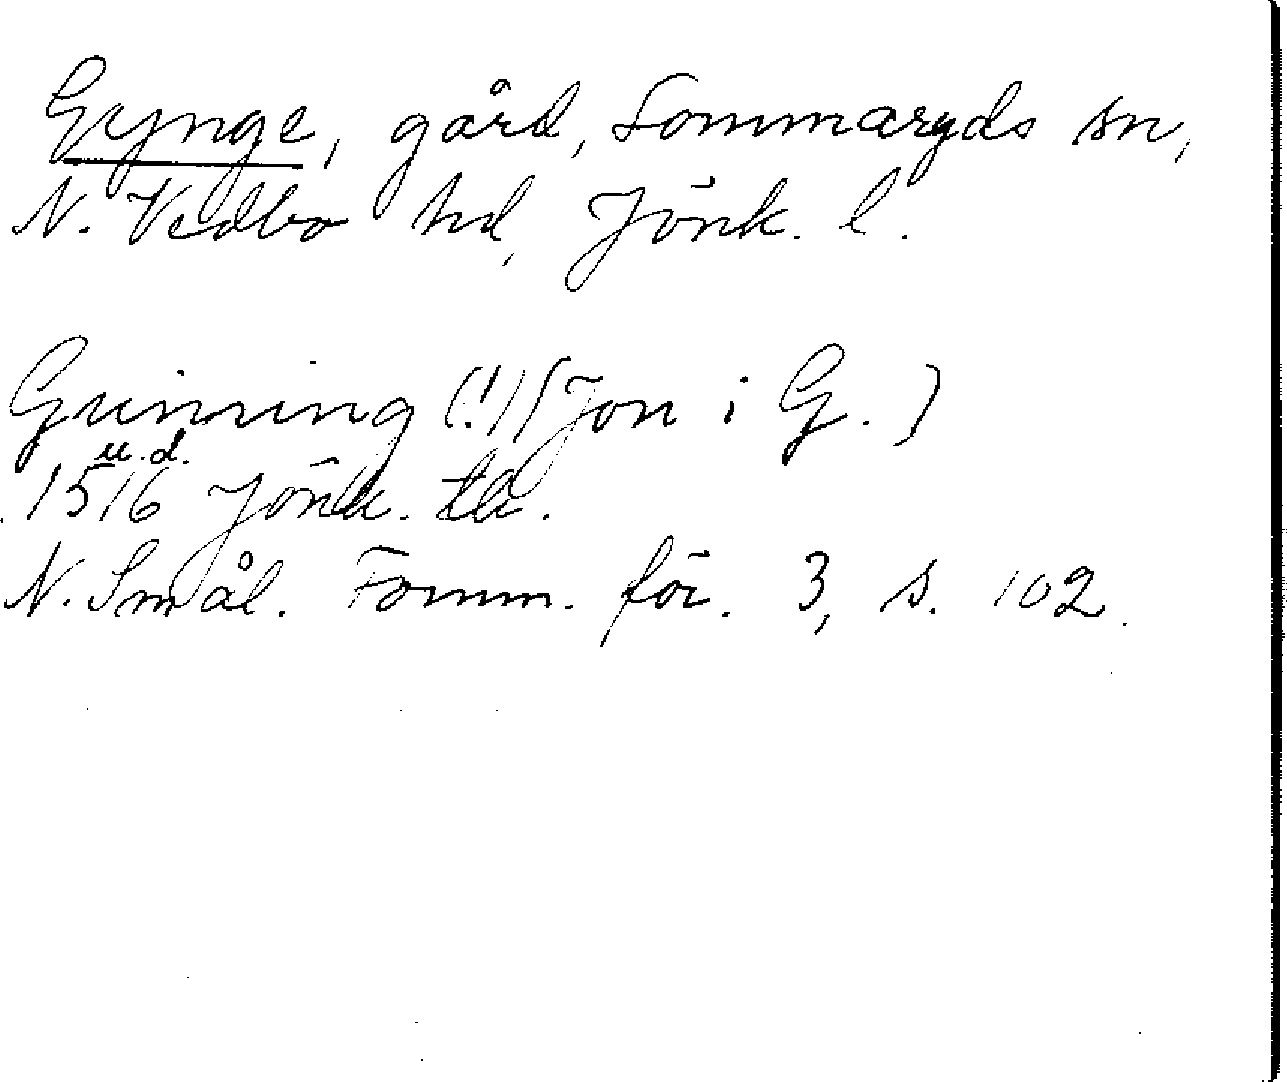 Gynge, gård, Sommaryds sn,
N. Vedbo hd, Jönk. l.
Guinning (!) (Jon i G.)
u.d.
1516 Jönk. tb.
N. Smål. Fornm. för. 3, s. 102.